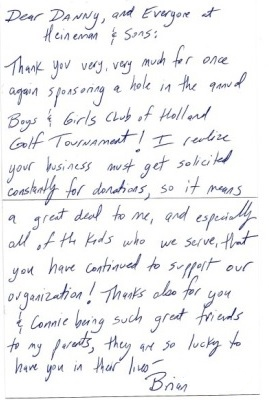 Dear Danny, and Everyone at
Heineman & Sons:
Thank you very, very much for once
again sponsoring a hole in the annual
Boys & Girls Club of Holland
Golf Tournament! I realize
your business must get solicited
constantly for donations, so it means
a great deal to me, and especially
all of the kids who we serve, that
you have continued to support our
organization! Thanks also for you
& Connie being such great friends
to my parents, they are so lucky to
have you in their lives-
Brian